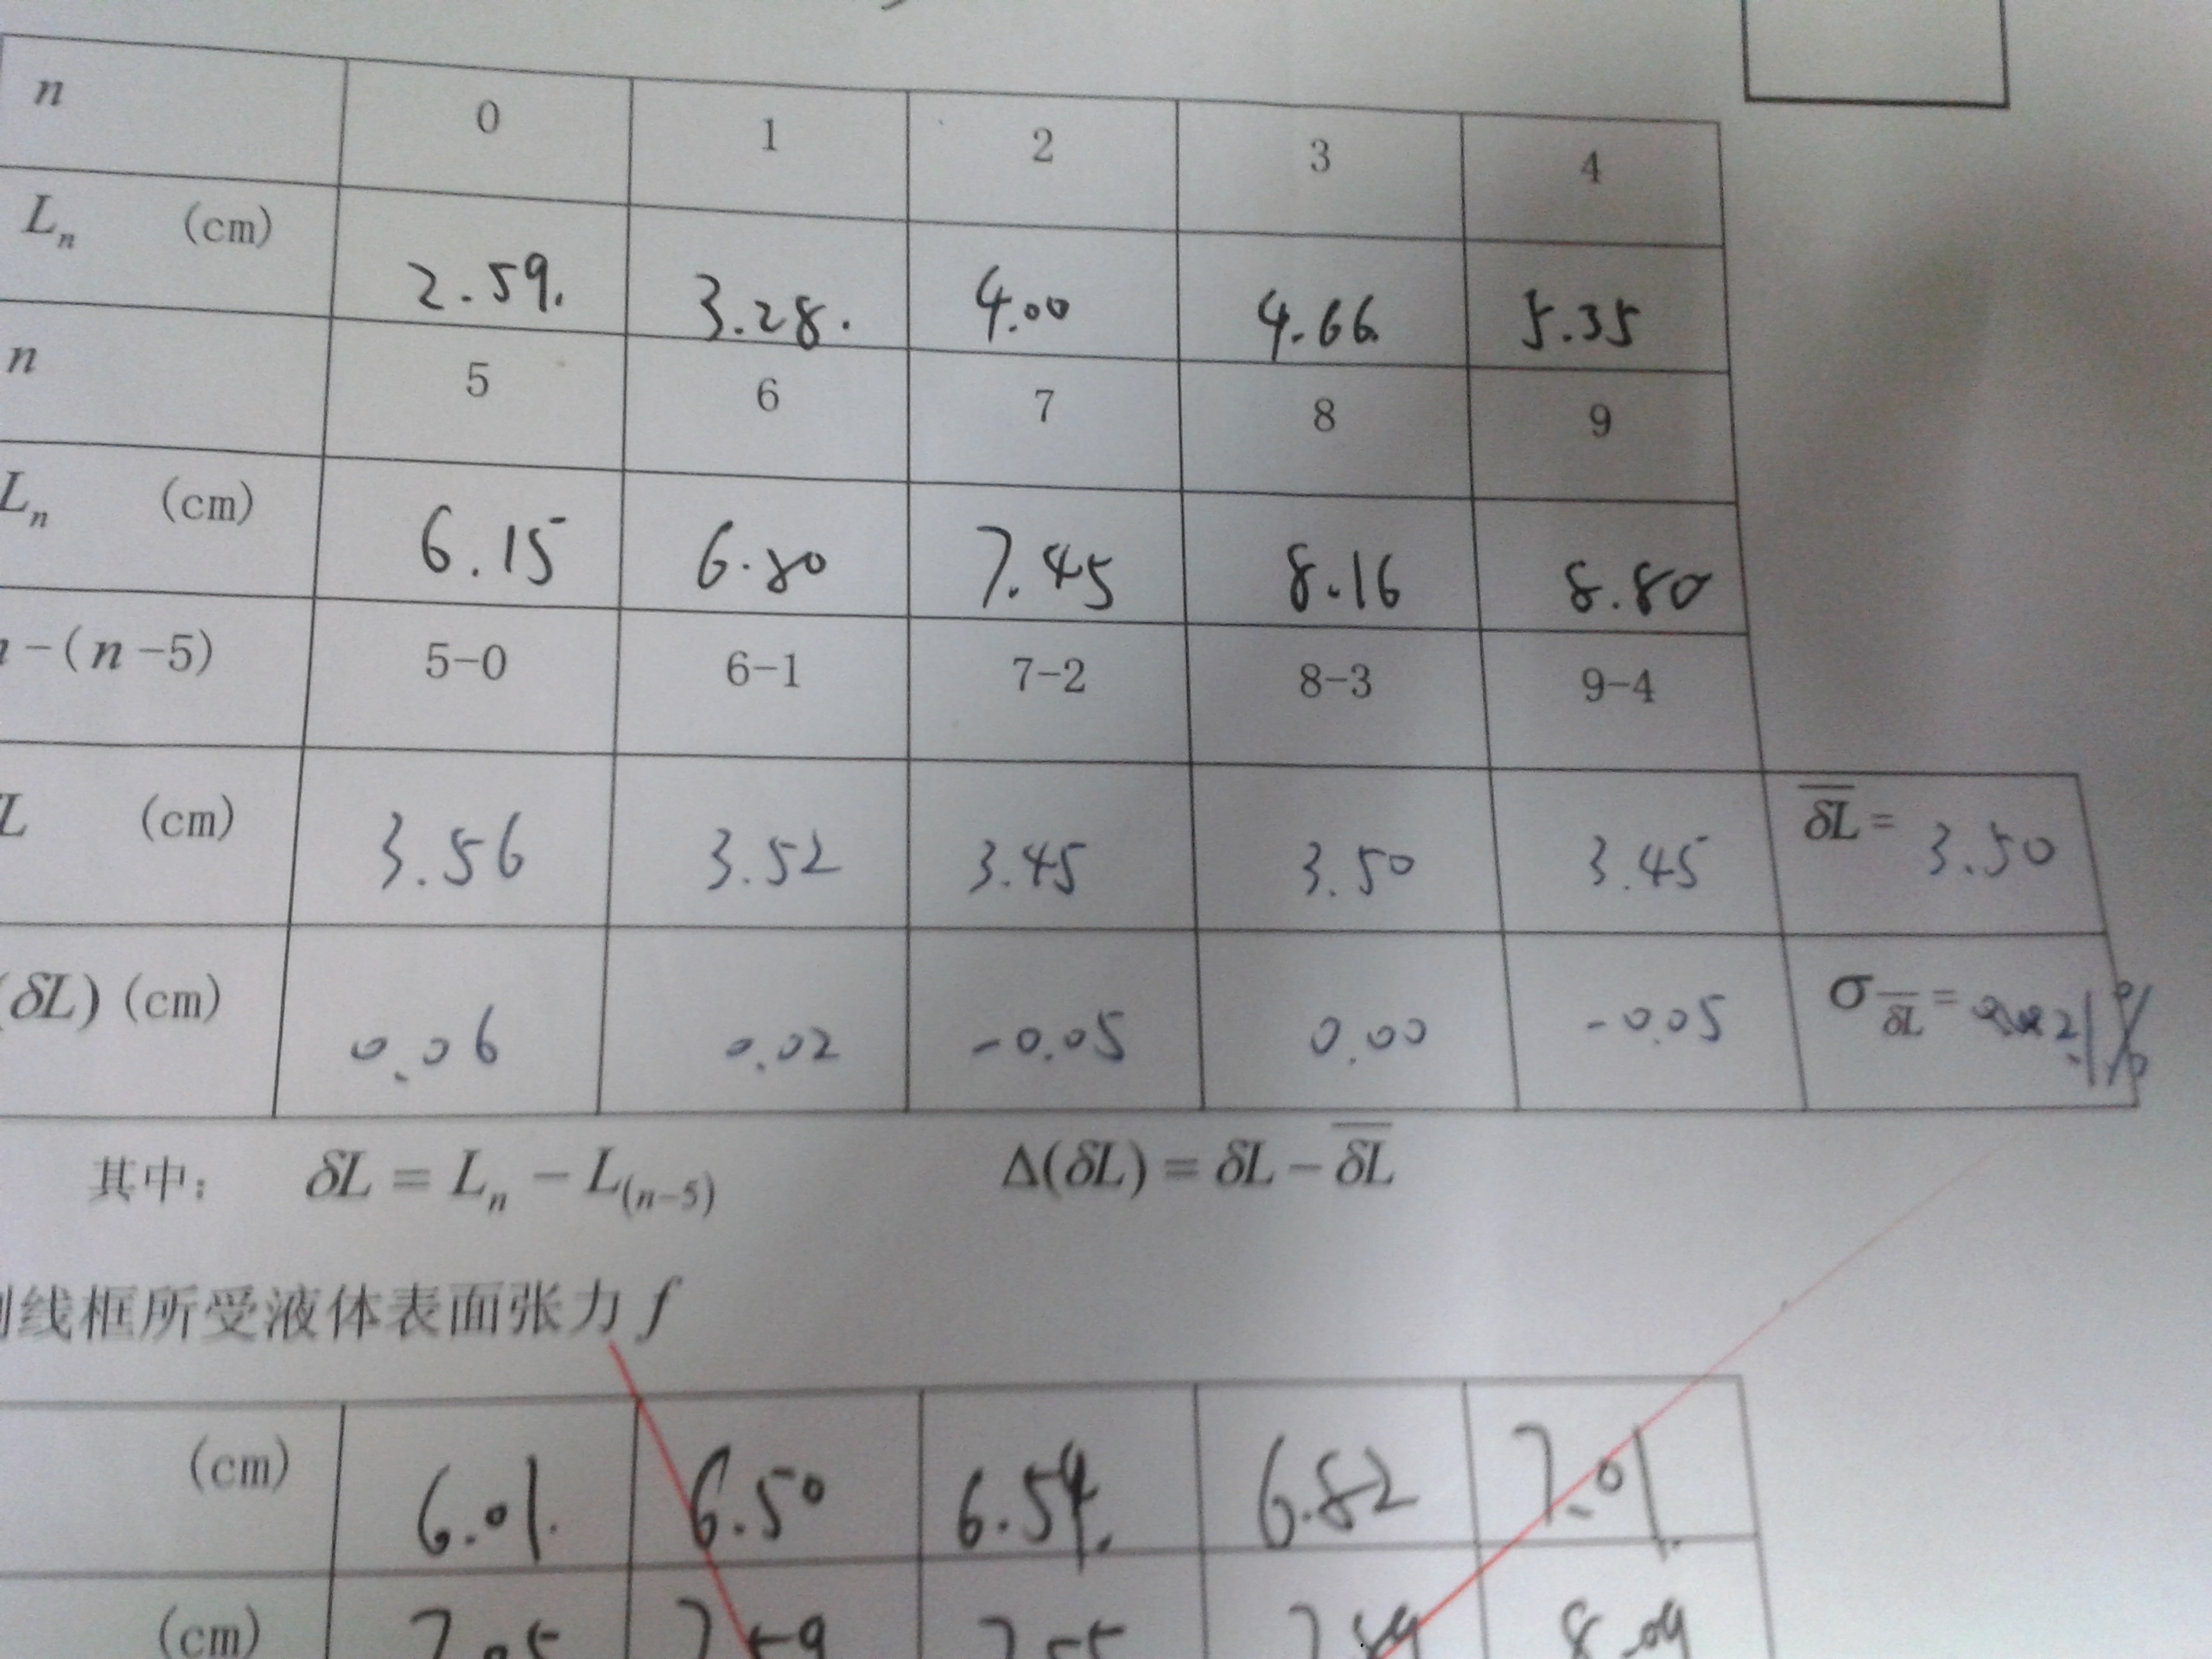 n 0 1 2 3 4
Lₙ (cm) 2.59. 3.28. 4.00 4.66. 5.35
n 5 6 7 8 9
Lₙ (cm) 6.15 6.80 7.45 8.16 8.80
-(n-5) 5-0 6-1 7-2 8-3 9-4
L (cm) 3.56 3.52 3.45 3.50 3.45 \overline{δL}= 3.50
(δL)(cm) 0.06 0.02 -0.05 0.00 -0.05 σ_{\overline{δL}}=
其中: δL = Lₙ - L₍ₙ₋₅₎ Δ(δL) = δL - \overline{δL}
线框所受液体表面张力 f
(cm) 6.01. 6.50 6.54. 6.82 7.01.
(cm) 8.09